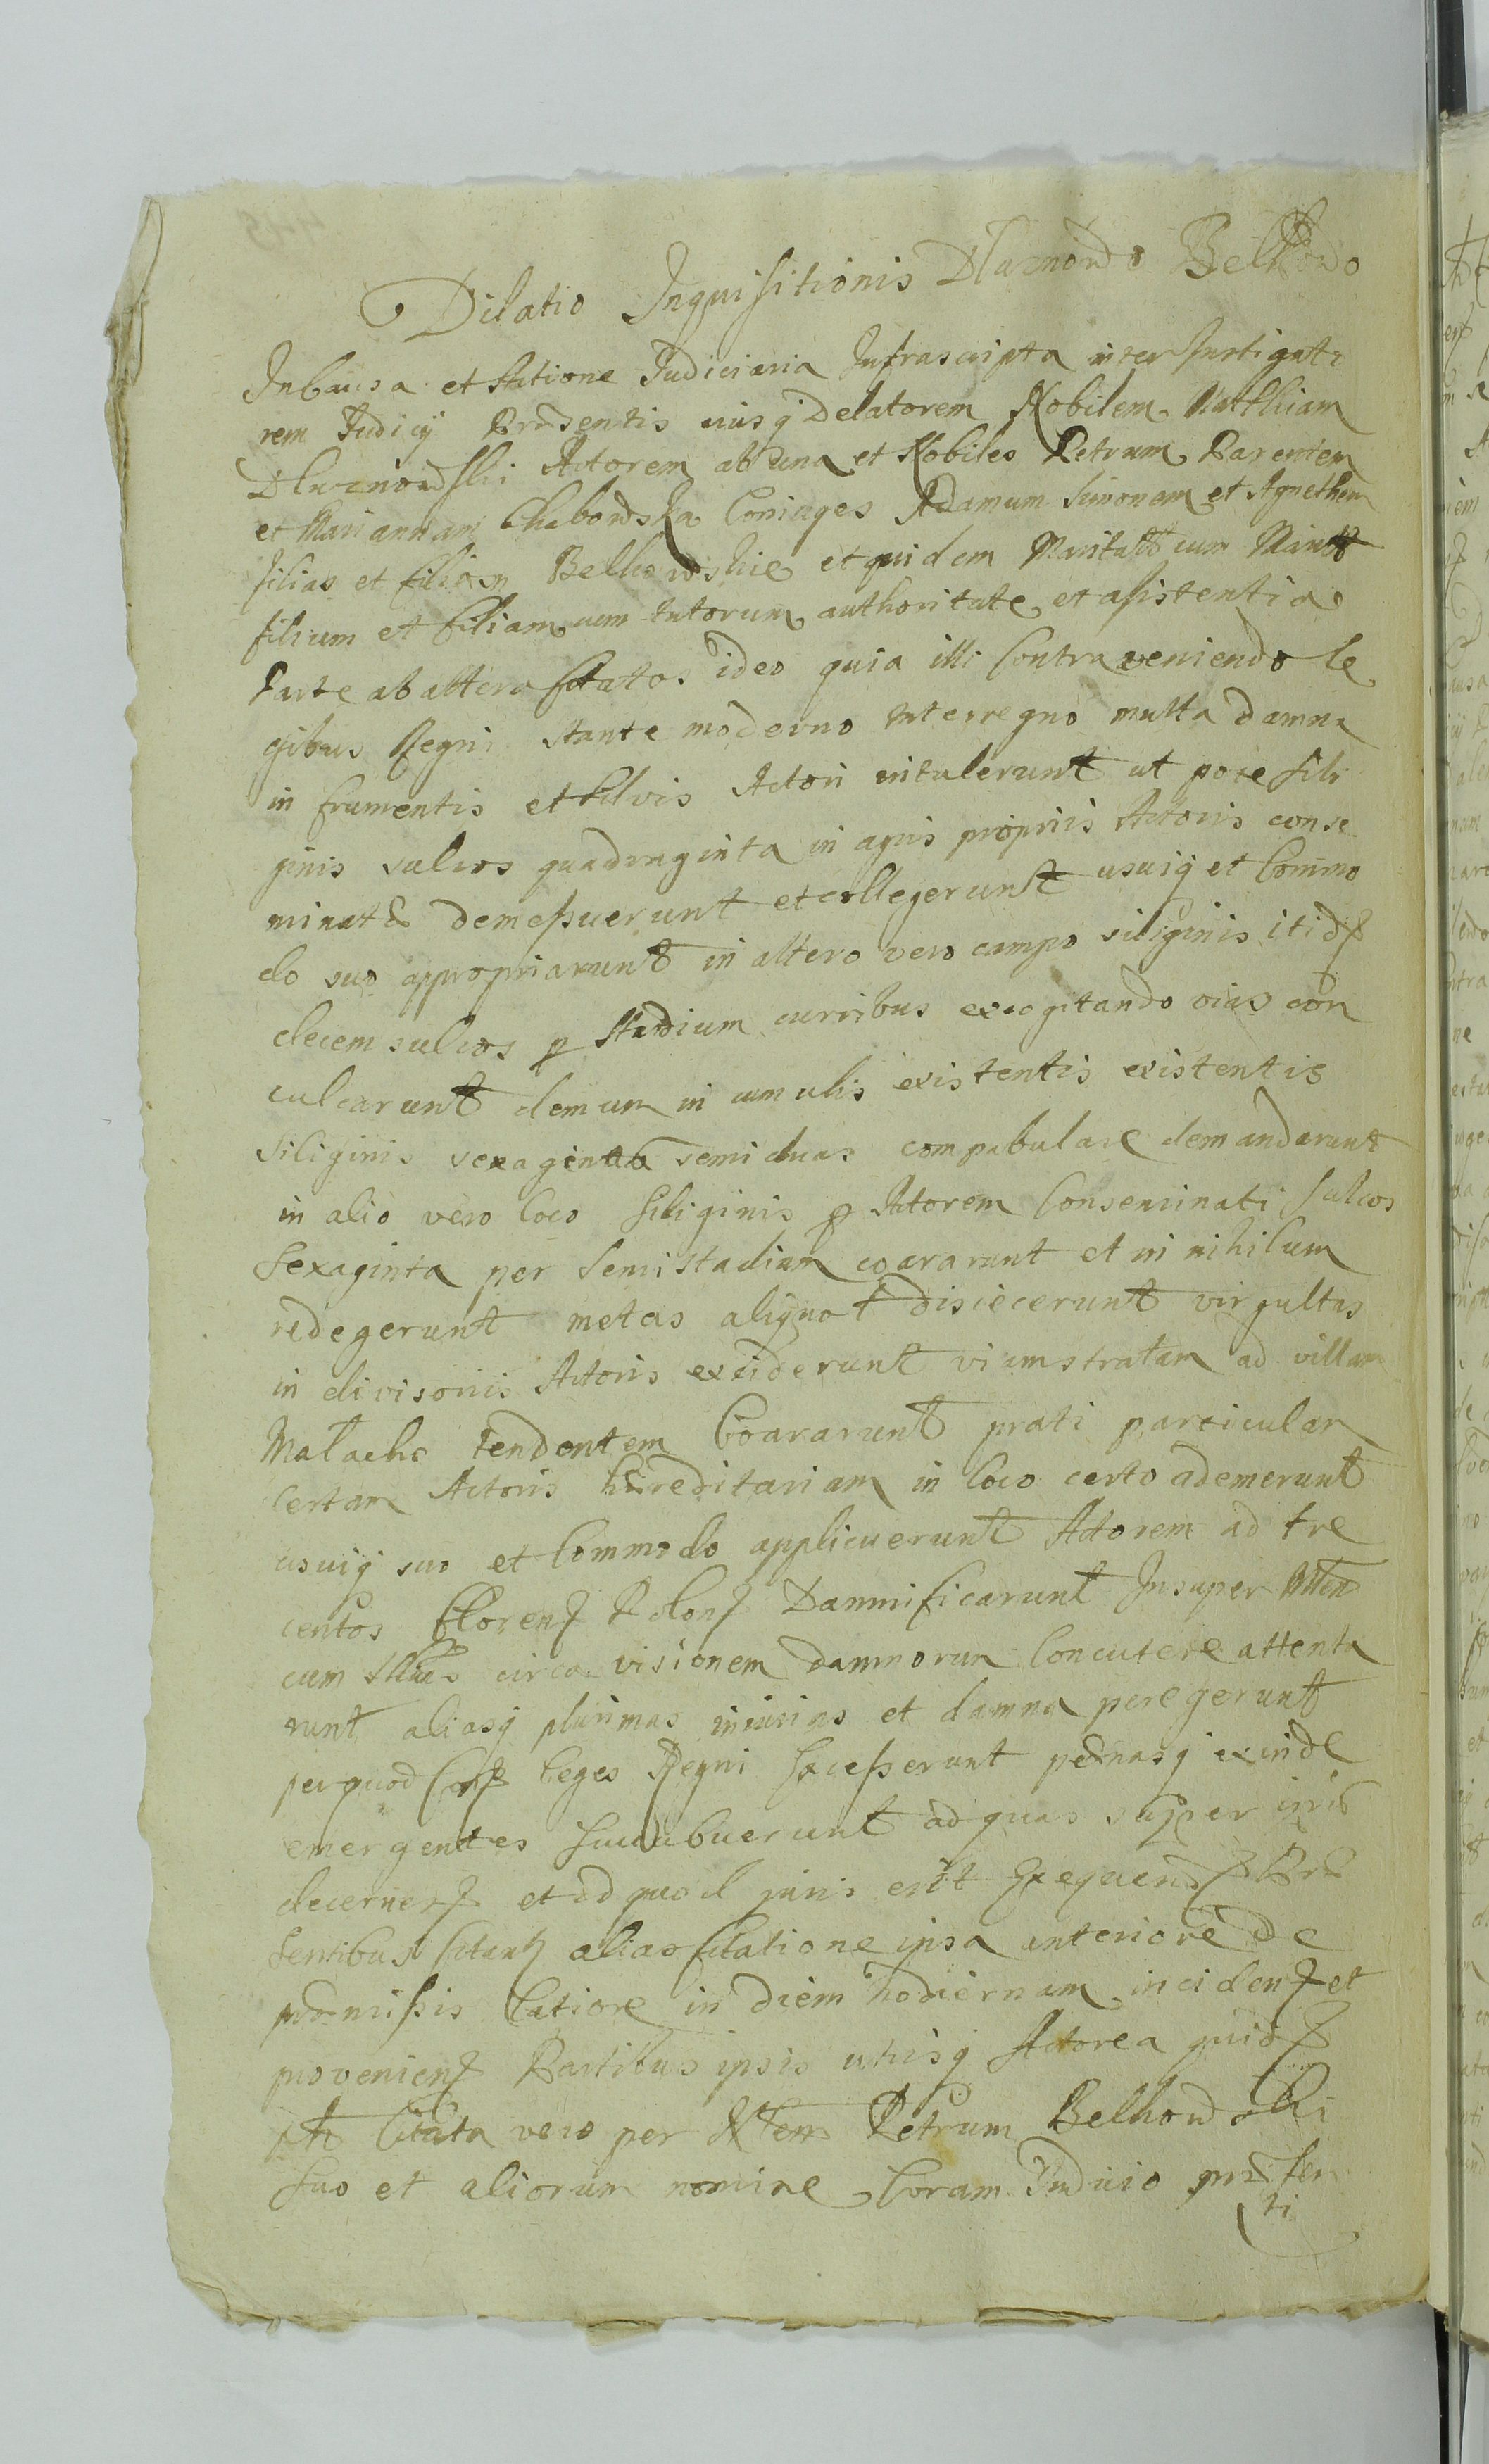 Dilatio Inquisitionis Dłuznowo Belkowo
In Causa et statione Judiciaria Infrascripta inter Instigato
rem Judicij Præsentis eiusq Delatorem Nobilem Matthiam
Dluznowski Actorem ab una et Nobiles Petrum Parentem
et Mariannam Chabowska Coniuges Adamum Simonem et Agnethem
filias et filiam Belkowskie et quidem Maritatã cum Marito
filium et filiam cum tutorum authoritate et assistentia
Parte ab altera Citatos ideo quia illi Contraveniendo le
gibus Regni stante moderno Interregno multa damna
in frumentis et silvis Actori intulerunt ut pote sili
ginis sulcos quadraginta in agris propriis Actoris conse
minatæ demessuerunt et collegerunt usuiq et Commo
do suo appropriarunt in altero vero campo siliginis itid
decem sulcos p stadium curribus excogitando vias con
culcarunt demum in cumulis existentis existentis
siliginis sexagenas semiduas compabulare demandarunt
in alio vero loco siliginis p Actorem Conseminati sulcos
sexaginta per semistadium coararunt et in nihilum
redegerunt metas aliquot disiecerunt virgultas
in divisoriis Actoris exciderunt viam stratam ad villam
Małachc tendentem Coararunt prati particulam
certam Actoris hæreditariam in loco certo ademerunt
usuiq suo et Commodo applicuerunt Actorem ad tre
centos Floren Polon Damnificarunt Insuper
cum circa visionem damnorum Concutere attenta
runt aliasq plurimas iniurias et damna peregerunt
per quod leges Regni excesserunt pænasq exinde
emergentes succubuerunt ad quas super iis
decernen et ad quod juris erit exequend Præ
sentibus citant alias Citatione ipsa anteriore de
præmissis latiore in diem hodiernam inciden et
provenien Partibus ipsis utrisq Actorea quid
Citata vero per Petrum Belkowski
suo et aliorum nomine Coram Judicio præsen
ti